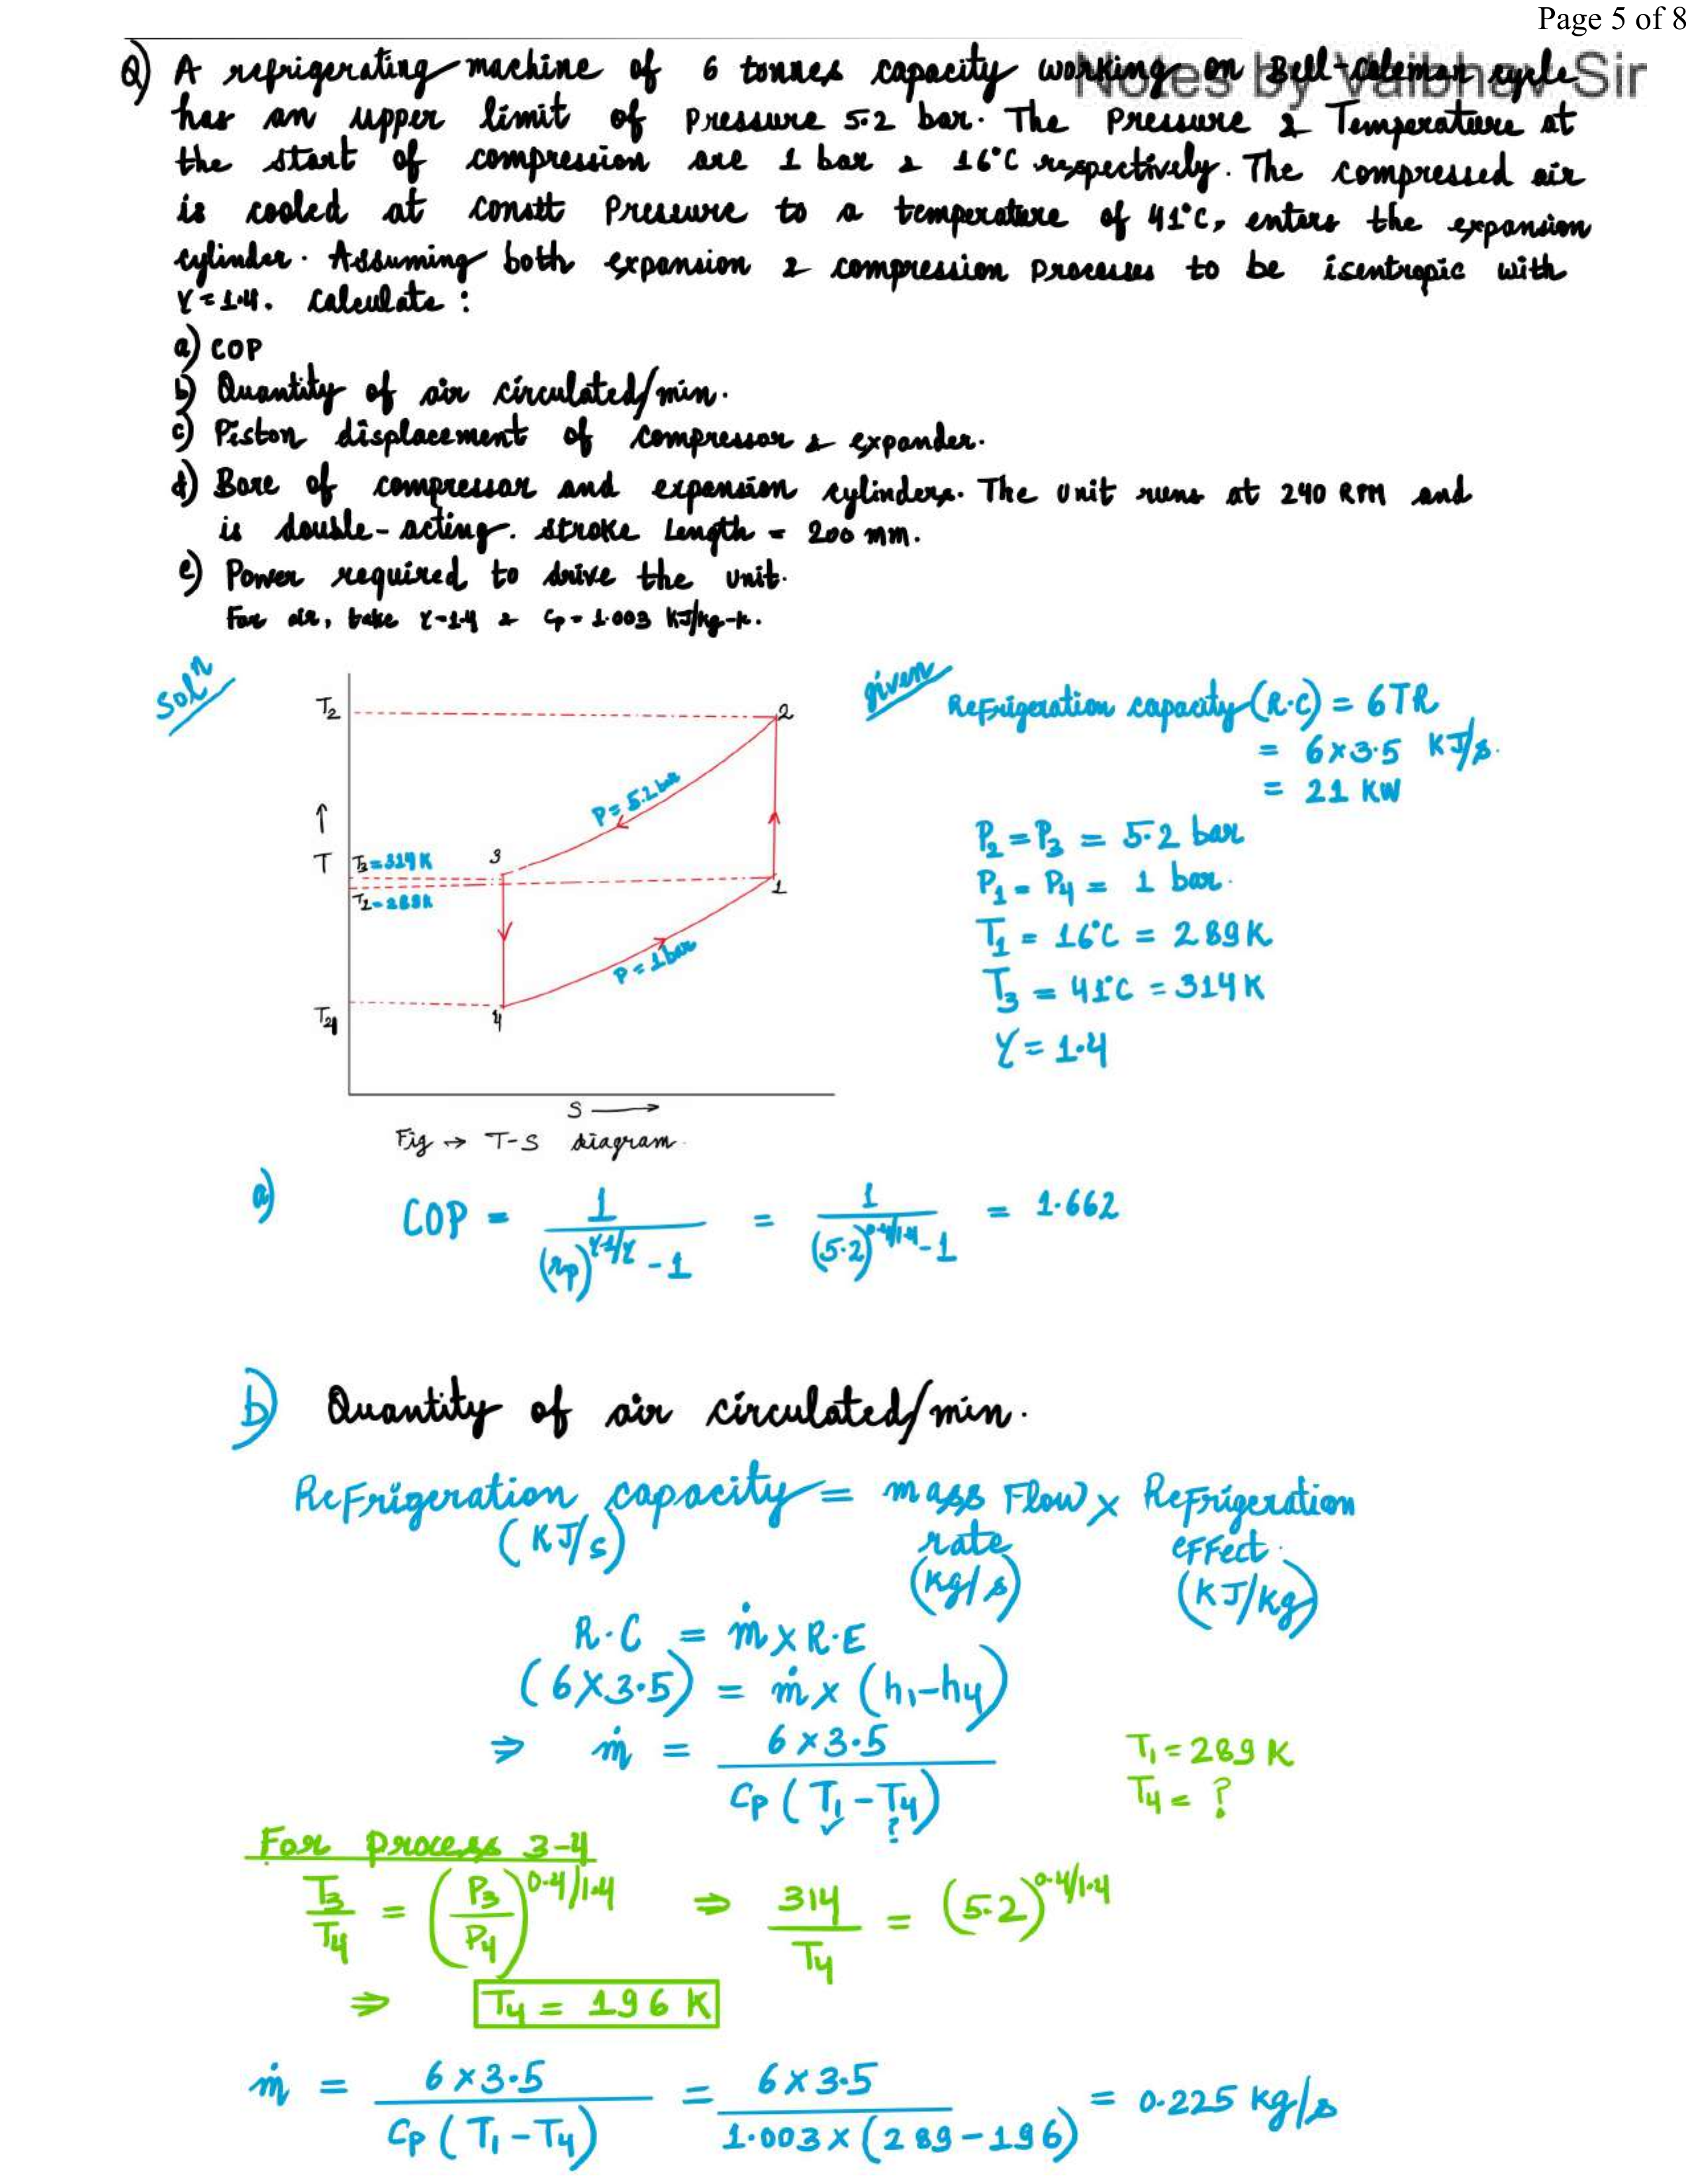 Page 5 of 8
Notes by Vaibhav Sir
Q) A refrigerating machine of 6 tonnes capacity working on Bell-coleman cycle
has an upper limit of Pressure 5.2 bar. The Pressure & Temperature at
the start of compression are 1 bar & 16°C respectively. The compressed air
is cooled at constt Pressure to a temperature of 41°C, enters the expansion
cylinder. Assuming both expansion & compression Processes to be isentropic with
γ = 1.4. Calculate :
a) COP
b) Quantity of air circulated/min.
c) Piston displacement of compressor & expander.
d) Bore of compressor and expansion cylinders. The Unit runs at 240 RPM and
is double-acting. stroke Length = 200 mm.
e) Power required to drive the unit.
For air, take γ=1.4 & Cp = 1.003 KJ/kg-K.
Solⁿ
given
Refrigeration capacity (R.C) = 6TR
= 6×3.5 KJ/s.
= 21 KW
P₂ = P₃ = 5.2 bar
P₁ = P₄ = 1 bar.
T₁ = 16°C = 289K
T₃ = 41°C = 314K
γ = 1.4
T₂
2
P = 5.2 bar
↑
T
T₃=314K
3
T₁=289K
1
P = 1 bar
T₄
4
S ⟶
Fig → T-S diagram.
a) COP = 1/((rp)^(γ-1/γ) - 1) = 1/((5.2)^(0.4/1.4) - 1) = 1.662
b) Quantity of air circulated/min.
Refrigeration capacity = mass Flow × Refrigeration
(KJ/s) rate effect.
(kg/s) (KJ/kg)
R.C = ṁ × R.E
(6×3.5) = ṁ × (h₁-h₄)
⇒ ṁ = 6×3.5/(Cp (T₁ - T₄))
✓ ?
T₁ = 289 K
T₄ = ?
For process 3-4
T₃/T₄ = (P₃/P₄)^(0.4/1.4) ⇒ 314/T₄ = (5.2)^(0.4/1.4)
⇒ T₄ = 196 K
ṁ = 6×3.5/(Cp (T₁ - T₄)) = 6×3.5/(1.003 × (289-196)) = 0.225 kg/s